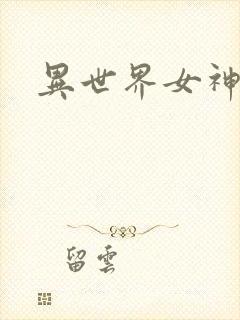 異世界女神
留雲